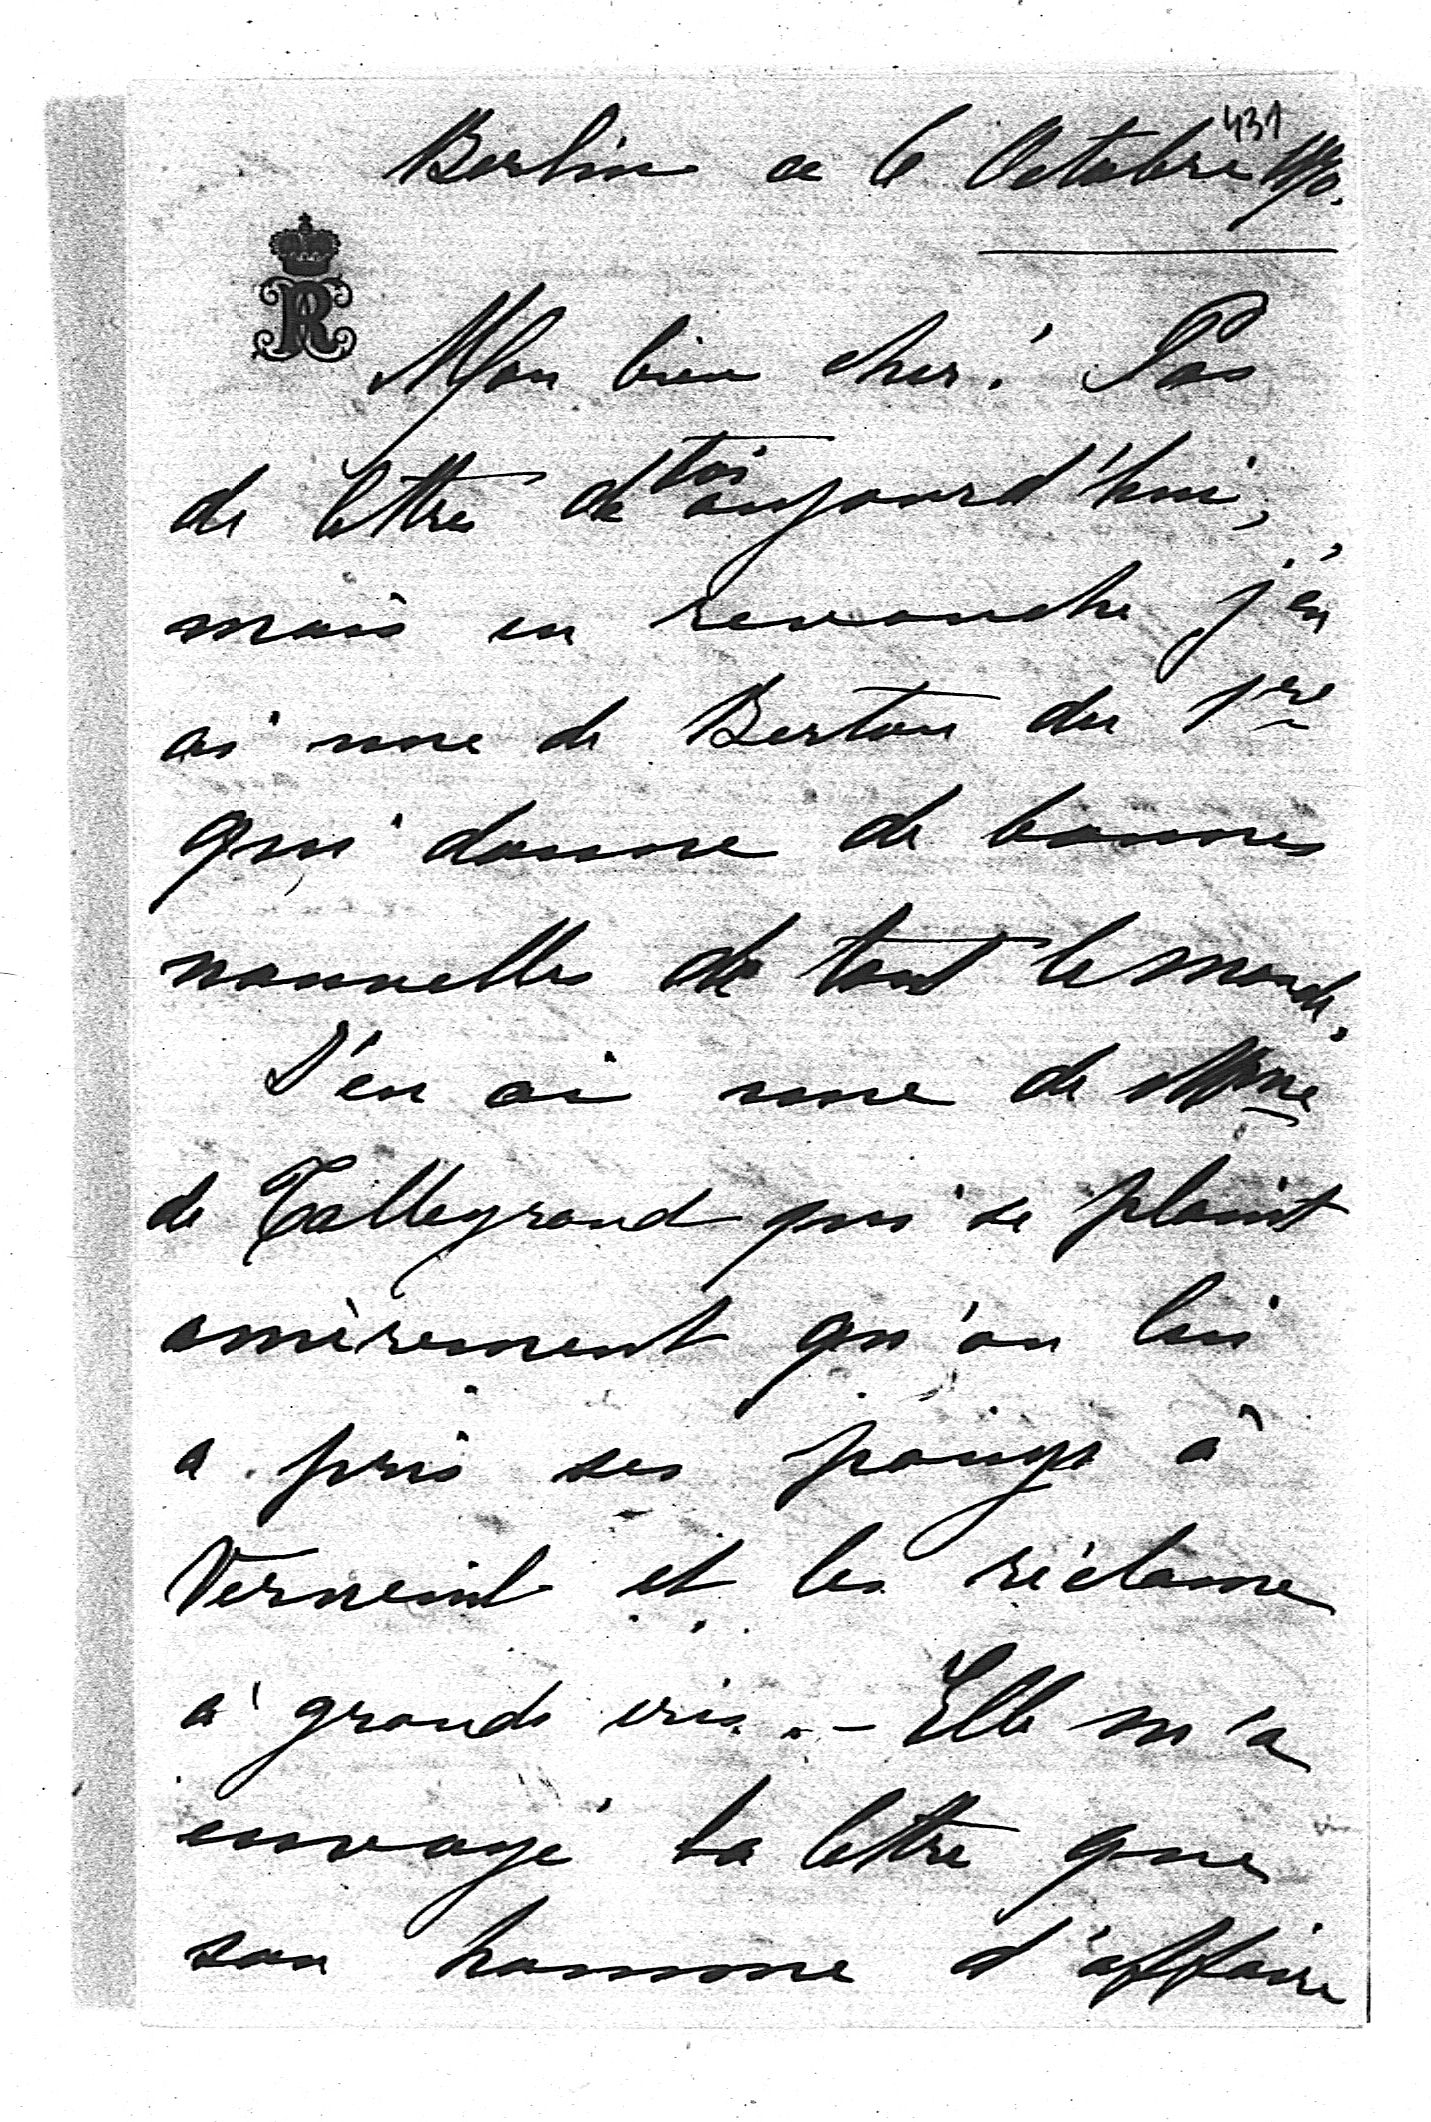 431
Berlin ce 6 Octobre 1870.
R
Mon bien cher! Pas
de lettre de toi aujourd'hui,
mais en revanche j'en
ai une de Berton du 1re
qui donne de bonnes
nouvelles de tout le monde.
J'en ai une de Mme
de Talleyrand qui se plaint
amèrement qu'on lui
a pris ses
Verneuil et les réclame
à grands cris. - Elle m'a
envoyé la lettre que
son homme d'affaire